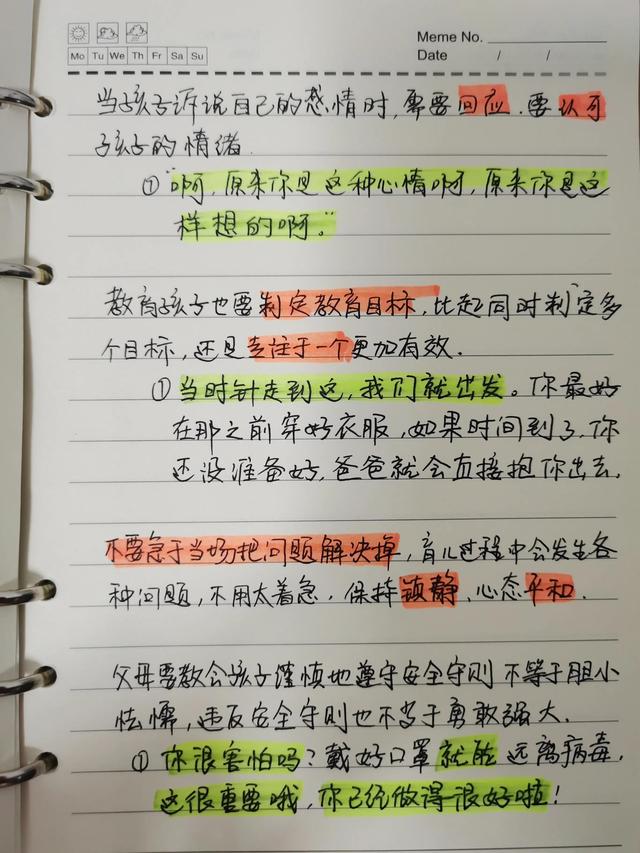 Meme No.
Mo Tu We Th Fr Sa Su
Date / /
当孩子诉说自己的感情时,需要回应.要认可
孩子的情绪.
①"啊,原来你是这种心情啊,原来你是这
样想的啊."
教育孩子也要制定教育目标,比起同时制定多
个目标,还是专注于一个更加有效.
①当时针走到这,我们就出发。你最好
在那之前穿好衣服,如果时间到了,你
还没准备好,爸爸就会直接抱你出去.
不要急于当场把问题解决掉,育儿过程中会发生各
种问题,不用太着急,保持镇静、心态平和.
父母要教会孩子谨慎地遵守安全守则 不等于胆小
怯懦,违反安全守则也不等于勇敢强大.
①你很害怕吗?戴好口罩就能远离病毒,
这很重要哦,你已经做得很好啦!